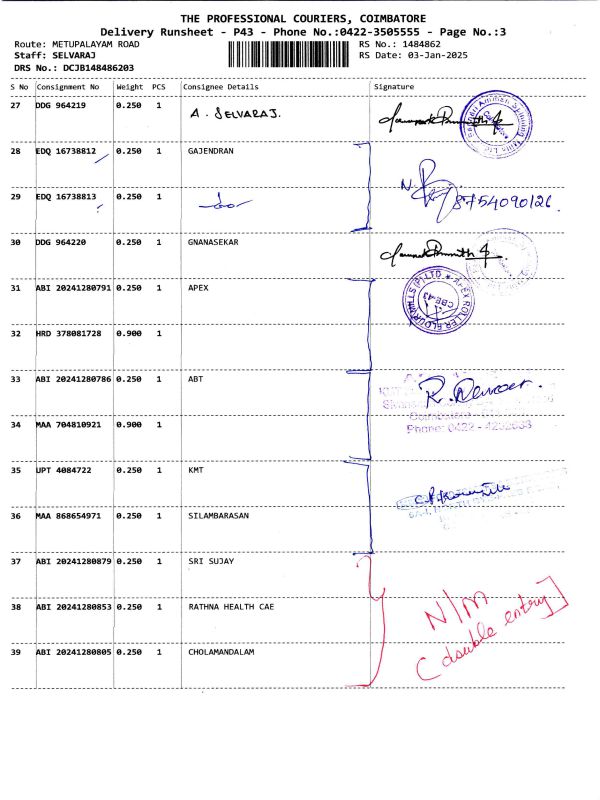 THE PROFESSIONAL COURIERS, COIMBATORE
Delivery Runsheet - P43 - Phone No.:0422-3505555 - Page No.:3
Route: METUPALAYAM ROAD RS No.: 1484862
Staff: SELVARAJ RS Date: 03-Jan-2025
DRS No.: DCJB148486203
S No Consignment No Weight PCS Consignee Details Signature
27 DDG 964219 0.250 1 A. SELVARAJ.
28 EDQ 16738812 0.250 1 GAJENDRAN
29 EDQ 16738813 0.250 1 -do- 8754090126
30 DDG 964220 0.250 1 GNANASEKAR
31 ABI 20241280791 0.250 1 APEX
APEX ROLLER FLOUR MILLS (P) LTD
CBE-43
32 HRD 378081728 0.900 1
33 ABI 20241280786 0.250 1 ABT
34 MAA 704810921 0.900 1
Phone: 0422 - 4202633
35 UPT 4084722 0.250 1 KMT
36 MAA 868654971 0.250 1 SILAMBARASAN
37 ABI 20241280879 0.250 1 SRI SUJAY
38 ABI 20241280853 0.250 1 RATHNA HEALTH CAE
N/M
(double entry]
39 ABI 20241280805 0.250 1 CHOLAMANDALAM